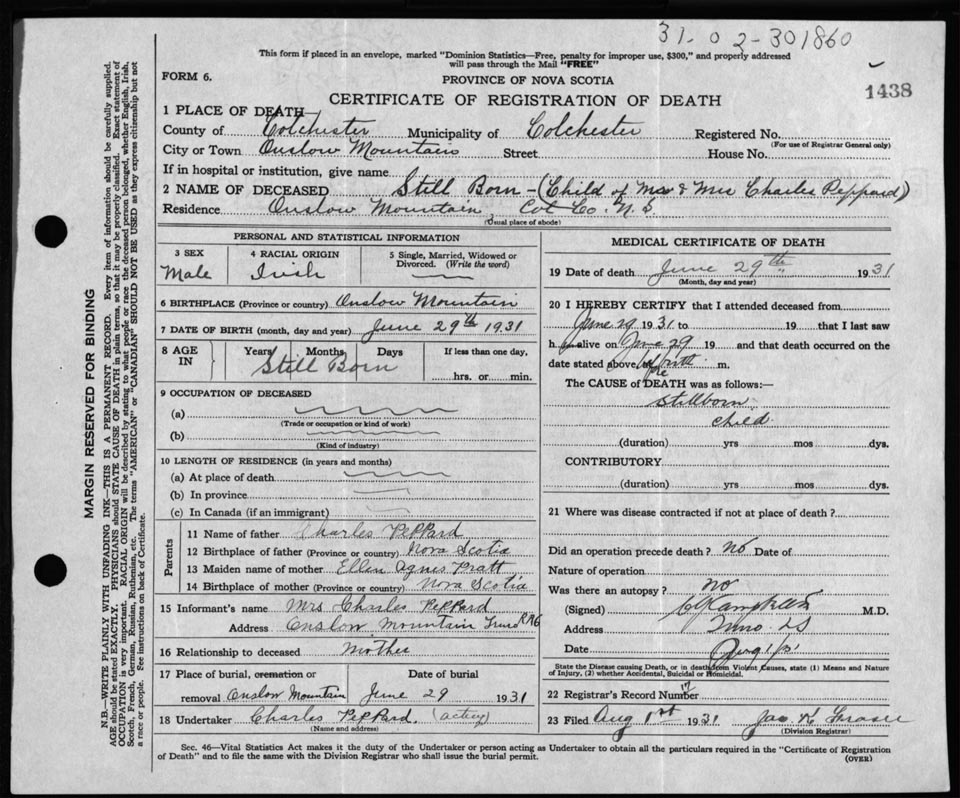 31-02-301860
This form if placed in an envelope, marked "Dominion Statistics—Free, penalty for improper use, $300," and properly addressed
will pass through the Mail "FREE"
FORM 6.
PROVINCE OF NOVA SCOTIA
1438
CERTIFICATE OF REGISTRATION OF DEATH
1 PLACE OF DEATH
County of Colchester Municipality of Colchester Registered No.
(For use of Registrar General only)
City or Town Onslow Mountain Street House No.
If in hospital or institution, give name
2 NAME OF DECEASED Still Born - (Child of Mr & Mrs Charles Peppard)
Residence Onslow Mountain, Col. Co. N.S.
(Usual place of abode)
PERSONAL AND STATISTICAL INFORMATION
3 SEX 4 RACIAL ORIGIN 5 Single, Married, Widowed or
Divorced. (Write the word)
Male Irish
6 BIRTHPLACE (Province or country) Onslow Mountain
7 DATE OF BIRTH (month, day and year) June 29th 1931
8 AGE IN Years Months Days If less than one day,
Still Born
hrs. or min.
9 OCCUPATION OF DECEASED
(a)
(Trade or occupation or kind of work)
(b)
(Kind of industry)
10 LENGTH OF RESIDENCE (in years and months)
(a) At place of death
(b) In province
(c) In Canada (if an immigrant)
Parents
11 Name of father Charles Peppard
12 Birthplace of father (Province or country) Nova Scotia
13 Maiden name of mother Ellen Agnes Pratt
14 Birthplace of mother (Province or country) Nova Scotia
15 Informant's name Mrs Charles Peppard
Address Onslow Mountain Truro R.R.6
16 Relationship to deceased Mother
17 Place of burial, cremation or Date of burial
removal Onslow Mountain June 29 1931
18 Undertaker Charles Peppard. (acting)
(Name and address)
MEDICAL CERTIFICATE OF DEATH
19 Date of death June 29th 1931
(Month, day and year)
20 I HEREBY CERTIFY that I attended deceased from
June 29 1931 to 19 that I last saw
h alive on June 29 19 and that death occurred on the
date stated above, at birth m.
The CAUSE of DEATH was as follows:—
Stillborn
child.
(duration) yrs mos dys.
CONTRIBUTORY
(duration) yrs mos dys.
21 Where was disease contracted if not at place of death?
Did an operation precede death? no Date of
Nature of operation
Was there an autopsy? no
(Signed) M.D.
Address Truro NS
Date Aug 1/31
State the Disease causing Death, or in death from Violent Causes, state (1) Means and Nature
of Injury, (2) whether Accidental, Suicidal or Homicidal.
22 Registrar's Record Number 17
23 Filed Aug 1st 1931 Jas K Fraser
(Division Registrar)
Sec. 46—Vital Statistics Act makes it the duty of the Undertaker or person acting as Undertaker to obtain all the particulars required in the "Certificate of Registration
of Death" and to file the same with the Division Registrar who shall issue the burial permit.
(OVER)
MARGIN RESERVED FOR BINDING
N.B.—WRITE PLAINLY WITH UNFADING INK—THIS IS A PERMANENT RECORD. Every item of information should be carefully supplied.
AGE should be stated EXACTLY. PHYSICIANS should STATE CAUSE OF DEATH in plain terms, so that it may be properly classified. Exact statement of
OCCUPATION is very important. RACIAL ORIGIN will be described by stating to what people or race the deceased person belonged, whether English, Irish,
Scotch, French, German, Russian, Ruthenian, etc. The terms "AMERICAN" or "CANADIAN" SHOULD NOT BE USED as they express citizenship but not
a race or people. See instructions on back of Certificate.